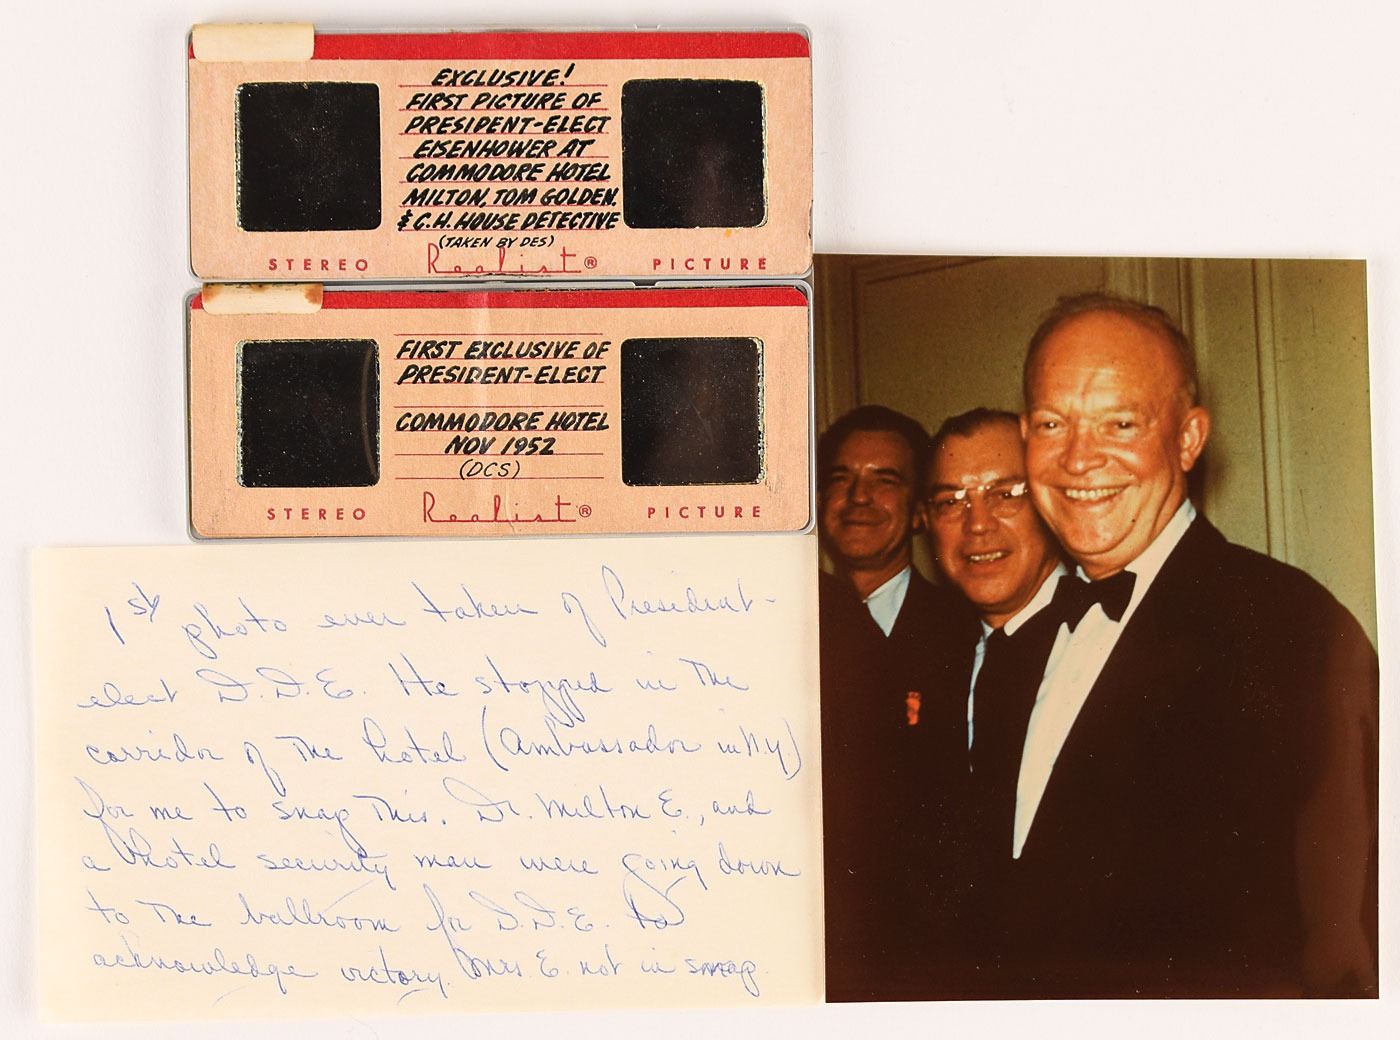 EXCLUSIVE!
FIRST PICTURE OF
PRESIDENT-ELECT
EISENHOWER AT
COMMODORE HOTEL
MILTON, TOM GOLDEN.
& C.H. HOUSE DETECTIVE
(TAKEN BY DES)
STEREO Realist® PICTURE
FIRST EXCLUSIVE OF
PRESIDENT-ELECT
COMMODORE HOTEL
NOV 1952
(DCS)
STEREO Realist® PICTURE
1st photo ever taken of President-
elect D.D.E. He stopped in the
corridor of the hotel (Ambassador in N.Y.)
for me to snap this. Dr. Milton E., and
a hotel security man were going down
to the ballroom for D.D.E. to
acknowledge victory. Mrs E. not in snap.